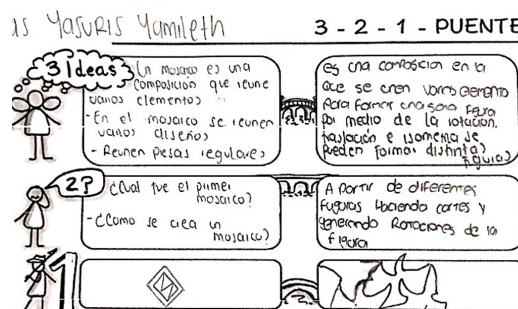 as Yasuris Yamileth
3 - 2 - 1 - PUENTE
3 ideas
Un mosaico es una
composición que reune
varios elementos
- En el mosaico se reunen
varios diseños
- Reunen piesas regulares
es una composición en la
que se unen varios elemento
Para formar una sola figura
por medio de la rotación,
traslación e isometria se
pueden formar distintas
figuras
2?
¿Cual fue el primer
mosaico?
- ¿Como se crea un
mosaico?
A Partir de diferentes
figuras Haciendo cortes y
generando Rotaciones de la
figura
1